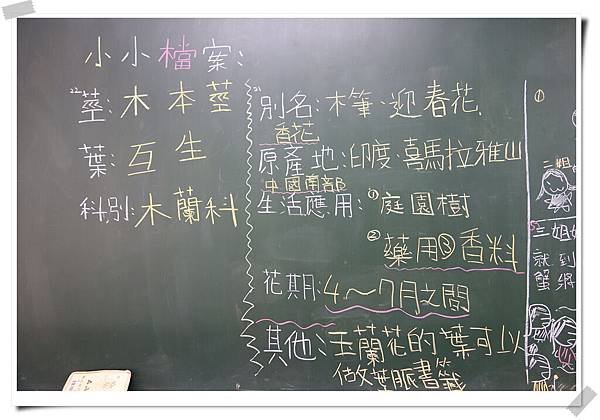 小小檔案:
莖:木本莖
葉:互生
科別:木蘭科
別名:木筆、迎春花、
香花
原產地:印度、喜馬拉雅山
中國南部
生活應用:①庭園樹
②藥用③香料
花期:4~7月之間
其他:玉蘭花的葉可以
做葉脈書籤
①
二姐
三姐
就到
蟹將